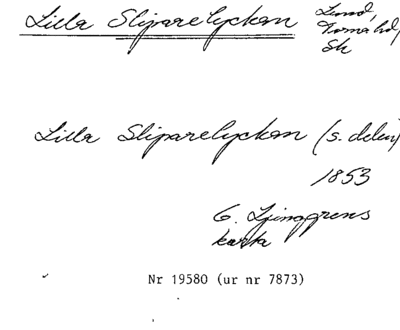 Lilla Sliparelyckan
Lund,
Torna hd,
Sk
Lilla Sliparelyckan (s. delen)
1853
G. Ljunggrens
karta
Nr 19580 (ur nr 7873)